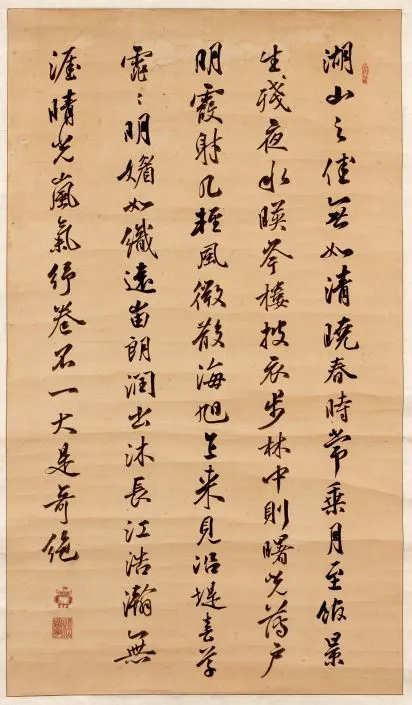 湖山之佳無如清曉春時常乘月至館景
生殘夜水暎岑樓披衣步林中則曙光薄戶
明霞射几輕風微散海旭乍来見沿堤春草
霏〻明媚如織遠岫朗潤出沐長江浩瀚無
涯晴光嵐氣舒卷不一大是奇絶